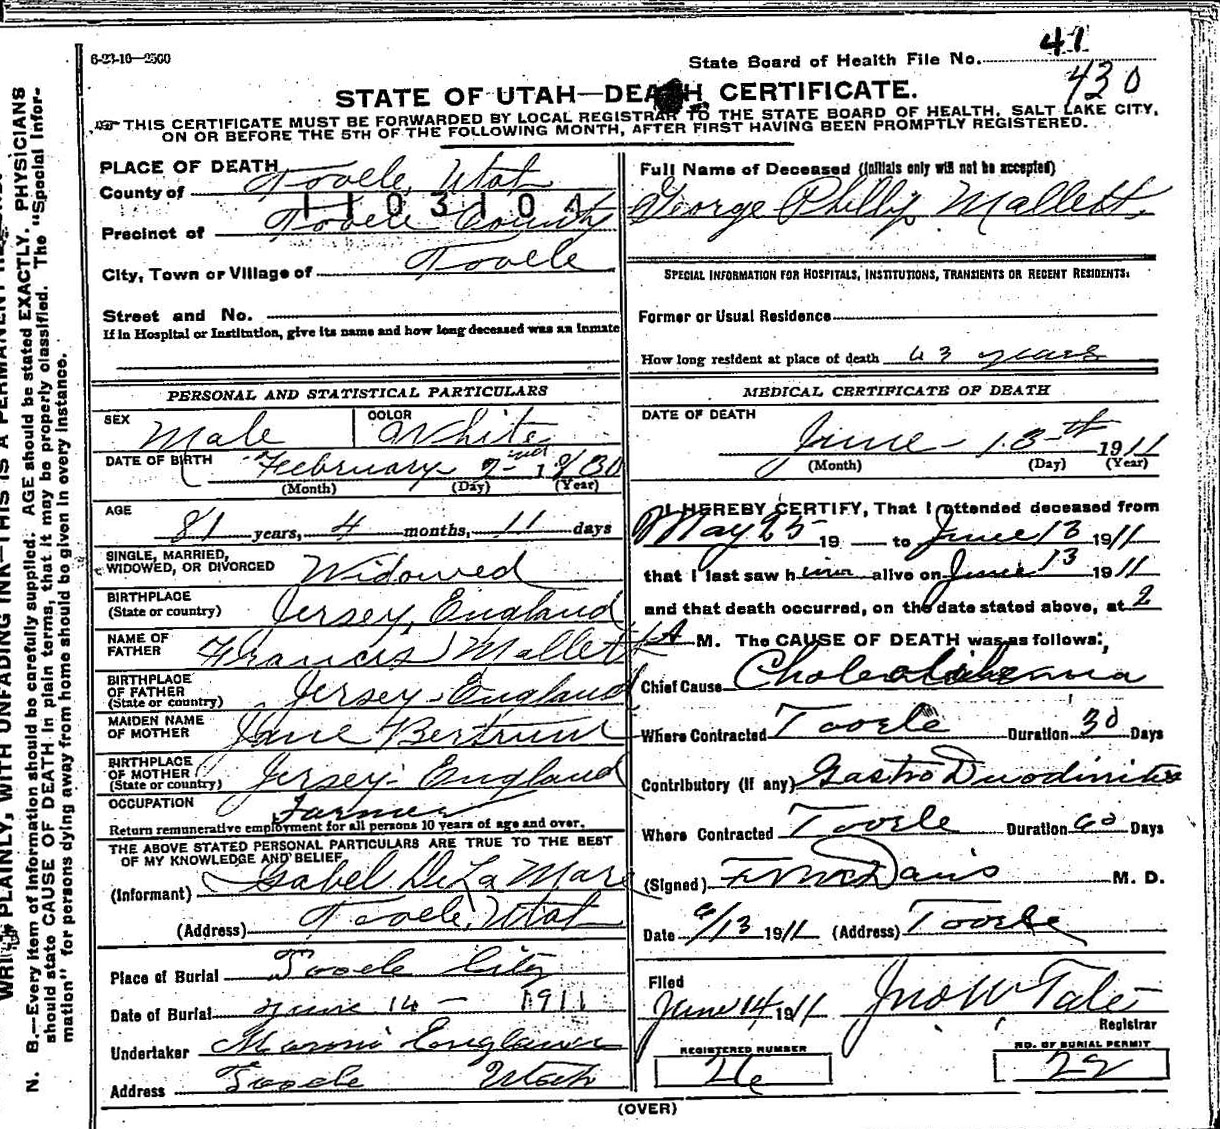 6-23-10—2500
State Board of Health File No. 41
430
STATE OF UTAH—DEATH CERTIFICATE.
THIS CERTIFICATE MUST BE FORWARDED BY LOCAL REGISTRAR TO THE STATE BOARD OF HEALTH, SALT LAKE CITY,
ON OR BEFORE THE 5TH OF THE FOLLOWING MONTH, AFTER FIRST HAVING BEEN PROMPTLY REGISTERED.
PLACE OF DEATH
County of Tooele, Utah
1103104
Precinct of Tooele County
City, Town or Village of Tooele
Street and No.
If in Hospital or Institution, give its name and how long deceased was an inmate
Full Name of Deceased (Initials only will not be accepted)
George Phillip Mallett
SPECIAL INFORMATION FOR HOSPITALS, INSTITUTIONS, TRANSIENTS OR RECENT RESIDENTS:
Former or Usual Residence
How long resident at place of death 43 years
PERSONAL AND STATISTICAL PARTICULARS
SEX Male COLOR White
DATE OF BIRTH February 2nd 1830
(Month) (Day) (Year)
AGE
81 years, 4 months, 11 days
SINGLE, MARRIED,
WIDOWED, OR DIVORCED Widowed
BIRTHPLACE
(State or country) Jersey, England
NAME OF
FATHER Francis Mallett
BIRTHPLACE
OF FATHER
(State or country) Jersey-England
MAIDEN NAME
OF MOTHER Jane Bertrum
BIRTHPLACE
OF MOTHER
(State or country) Jersey-England
OCCUPATION Farmer
Return remunerative employment for all persons 10 years of age and over.
THE ABOVE STATED PERSONAL PARTICULARS ARE TRUE TO THE BEST
OF MY KNOWLEDGE AND BELIEF
(Informant) Isabel De La Mare
(Address) Tooele, Utah
Place of Burial Tooele City
Date of Burial June 14 - 1911
Undertaker Maroni
Address Tooele Utah
MEDICAL CERTIFICATE OF DEATH
DATE OF DEATH
June - 13-th 1911
(Month) (Day) (Year)
I HEREBY CERTIFY, That I attended deceased from
May 25 19 — to June 13 1911
that I last saw him alive on June 13 1911
and that death occurred, on the date stated above, at 2
A M. The CAUSE OF DEATH was as follows:
Chief Cause
Where Contracted Tooele Duration 30 Days
Contributory (If any) Gastro Duodinitis
Where Contracted Tooele Duration 60 Days
(Signed) Davis M. D.
Date 6/13 1911 (Address) Tooele
Filed
June 14 1911 Jno W Tate
Registrar
REGISTERED NUMBER
26
NO. OF BURIAL PERMIT
22
(OVER)
WRITE PLAINLY, WITH UNFADING INK—THIS IS A PERMANENT
N. B.—Every item of information should be carefully supplied. AGE should be stated EXACTLY. PHYSICIANS
should state CAUSE OF DEATH in plain terms, that it may be properly classified. The "Special Infor-
mation" for persons dying away from home should be given in every instance.